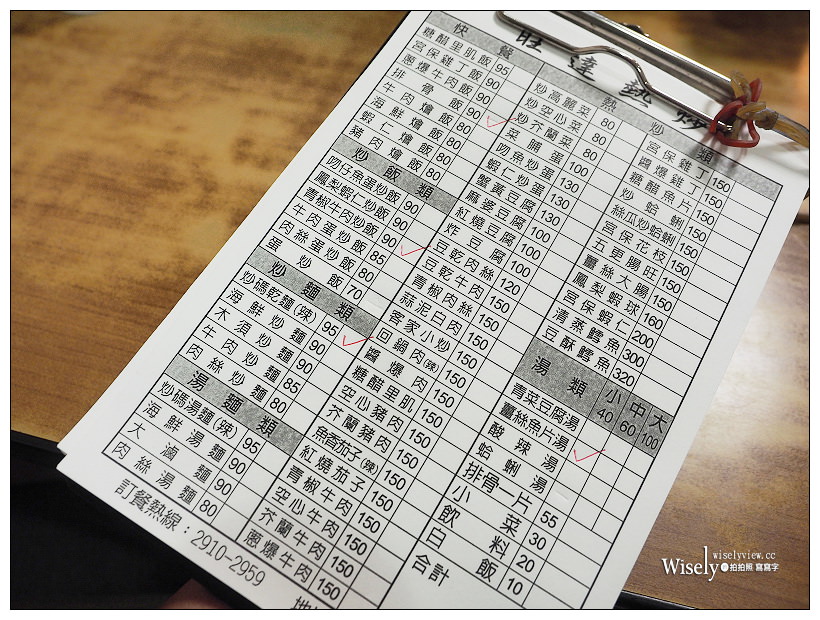 旺達熱炒
快餐
糖醋里肌飯 95
宮保雞丁飯 90
蔥爆牛肉飯 90
排骨飯 90
牛肉燴飯 80
海鮮燴飯 90
蝦仁燴飯 80
豬肉燴飯 80
炒飯類
吻仔魚蛋炒飯 90
鳳梨蝦仁炒飯 90
青椒牛肉炒飯 90
牛肉蛋炒飯 85
肉絲蛋炒飯 80
蛋炒飯 70
炒麵類
炒碼乾麵(辣) 95
海鮮炒麵 90
木須炒麵 90
牛肉炒麵 85
肉絲炒麵 80
湯麵類
炒碼湯麵(辣) 95
海鮮湯麵 90
大滷麵 90
肉絲湯麵 80
訂餐熱線:2910-2959
熱炒類
炒高麗菜 80
炒空心菜 80
炒芥蘭菜 80
菜脯蛋 100
吻魚炒蛋 130
蝦仁炒蛋 130
蟹黃豆腐 130
麻婆豆腐 100
紅燒豆腐 100
炸豆腐 100
豆乾肉絲 120
豆乾牛肉 150
青椒肉絲 150
蒜泥白肉 150
客家小炒 150
回鍋肉(辣) 150
醬爆肉 150
糖醋里肌 150
空心豬肉 150
芥蘭豬肉 150
魚香茄子(辣) 150
紅燒茄子 150
青椒牛肉 150
空心牛肉 150
芥蘭牛肉 150
蔥爆牛肉 150
宮保雞丁 150
醬爆雞丁 150
糖醋魚片 150
炒蛤蜊 150
絲瓜炒蛤蜊 150
宮保花枝 150
五更腸旺 150
薑絲大腸 150
鳳梨蝦球 160
宮保蝦仁 200
清蒸鱈魚 300
豆酥鱈魚 320
湯類 小40 中60 大100
青菜豆腐湯
薑絲魚片湯
酸辣湯
蛤蜊湯
排骨一片 55
小菜 30
飲料 20
白飯 10
合計
wiselyview.cc
Wisely 拍拍照 寫寫字